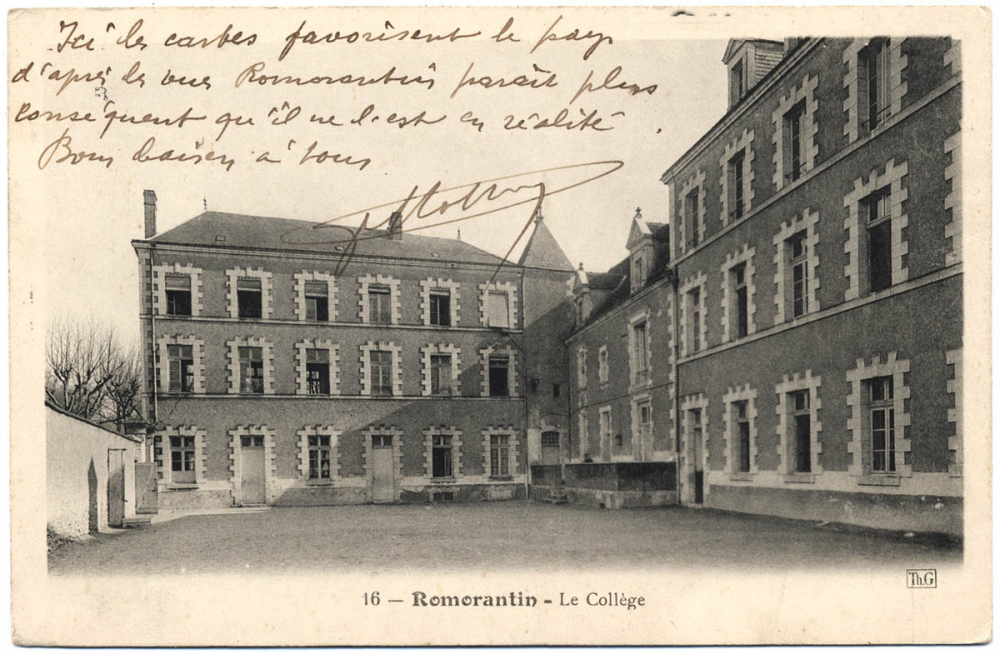 Ici les cartes favorisent le pays
d'après les vues Romorantin paraît plus
conséquent qu'il ne l'est en réalité.
Bons baisers à tous
16 - Romorantin - Le Collège
Th.G